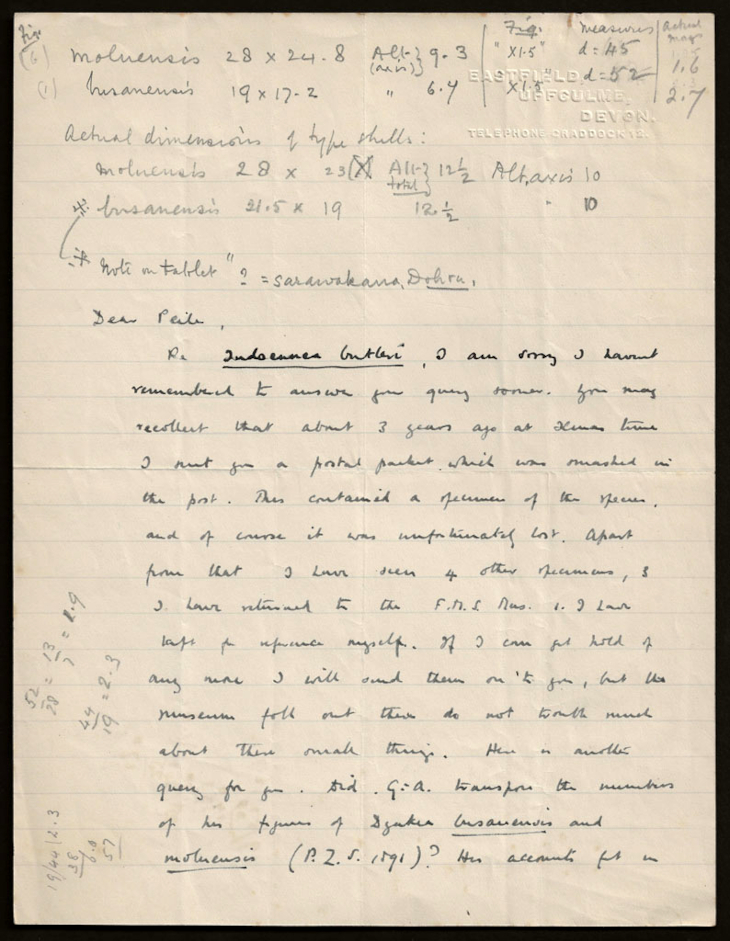 Fig.
(6) moluensis 28 x 24.8 Alt. (axis)} 9.3
Fig. measures actual mag.
" x1.5" d = 45 1.6
(1) busanensis 19 x 17.2 " 6.4
" x1.5" d = 52 2.7
EASTFIELD,
UFFCULME,
DEVON.
TELEPHONE CRADDOCK 12.
Actual dimensions of type shells:
moluensis 28 x 23 Alt. total} 12½ Alt. axis 10
busanensis 21.5 x 19 12.½ " 10
Note on tablet "? = sarawakana, Dohrn.
Dear Peile,
Re Indoennea butleri, I am sorry I havent
remembered to answer your query sooner. You may
recollect that about 3 years ago at Xmas time
I sent you a postal packet which was smashed in
the post. This contained a specimen of the species,
and of course it was unfortunately lost. Apart
from that I have seen 4 other specimens, 3
I have returned to the F.M.S. Mus. 1. I have
kept for reference myself. If I can get hold of
any more I will send them on to you, but the
museum folk out there do not trouble much
about these small things. Here is another
query for you. Did G-A. transpose the numbers
of his figures of Dyakia busanensis and
moluensis (P.Z.S. 1891)? His accounts fit in
52/28 = 13/7 = 1.9
44/19 = 2.3
19/44/2.3
38
60
57